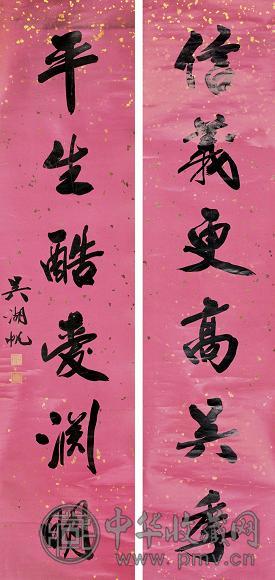 信義更高吴季
平生酷愛渊
吴湖帆
中华收藏网
www.pmv.cn